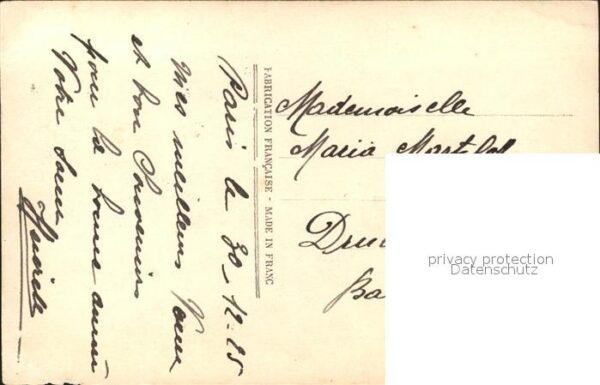 Paris le 30-12-25
Mes meilleurs Vœux
et bon Souvenir
pour la bonne année
Votre sœur
FABRICATION FRANÇAISE - MADE IN FRANC
Mademoiselle
Maria
privacy protection
Datenschutz